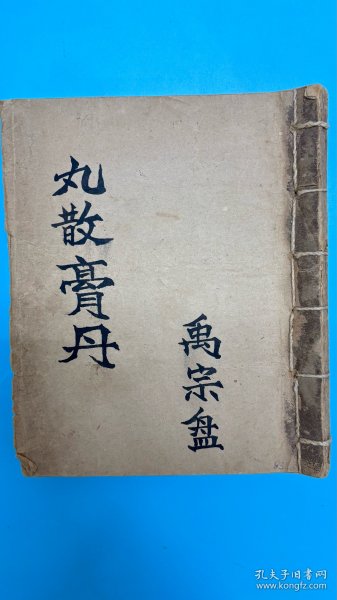 丸散膏丹
禹宗盘
孔夫子旧书网
www.kongfz.com